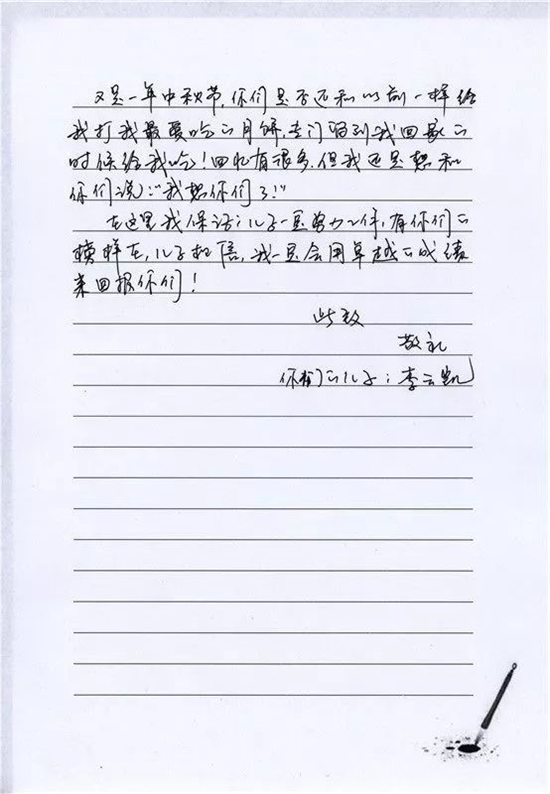 又是一年中秋节,你们是否还和以前一样给
我打我最爱吃的月饼,专门留到我回家的
时候给我吃!回忆有很多,但我还是想和
你们说:"我想你们了!"
在这里我保证:儿子一定努力工作,有你们的
榜样在,儿子相信,我一定会用卓越的成绩
来回报你们!
此致
敬礼
你们的儿子:李云凯